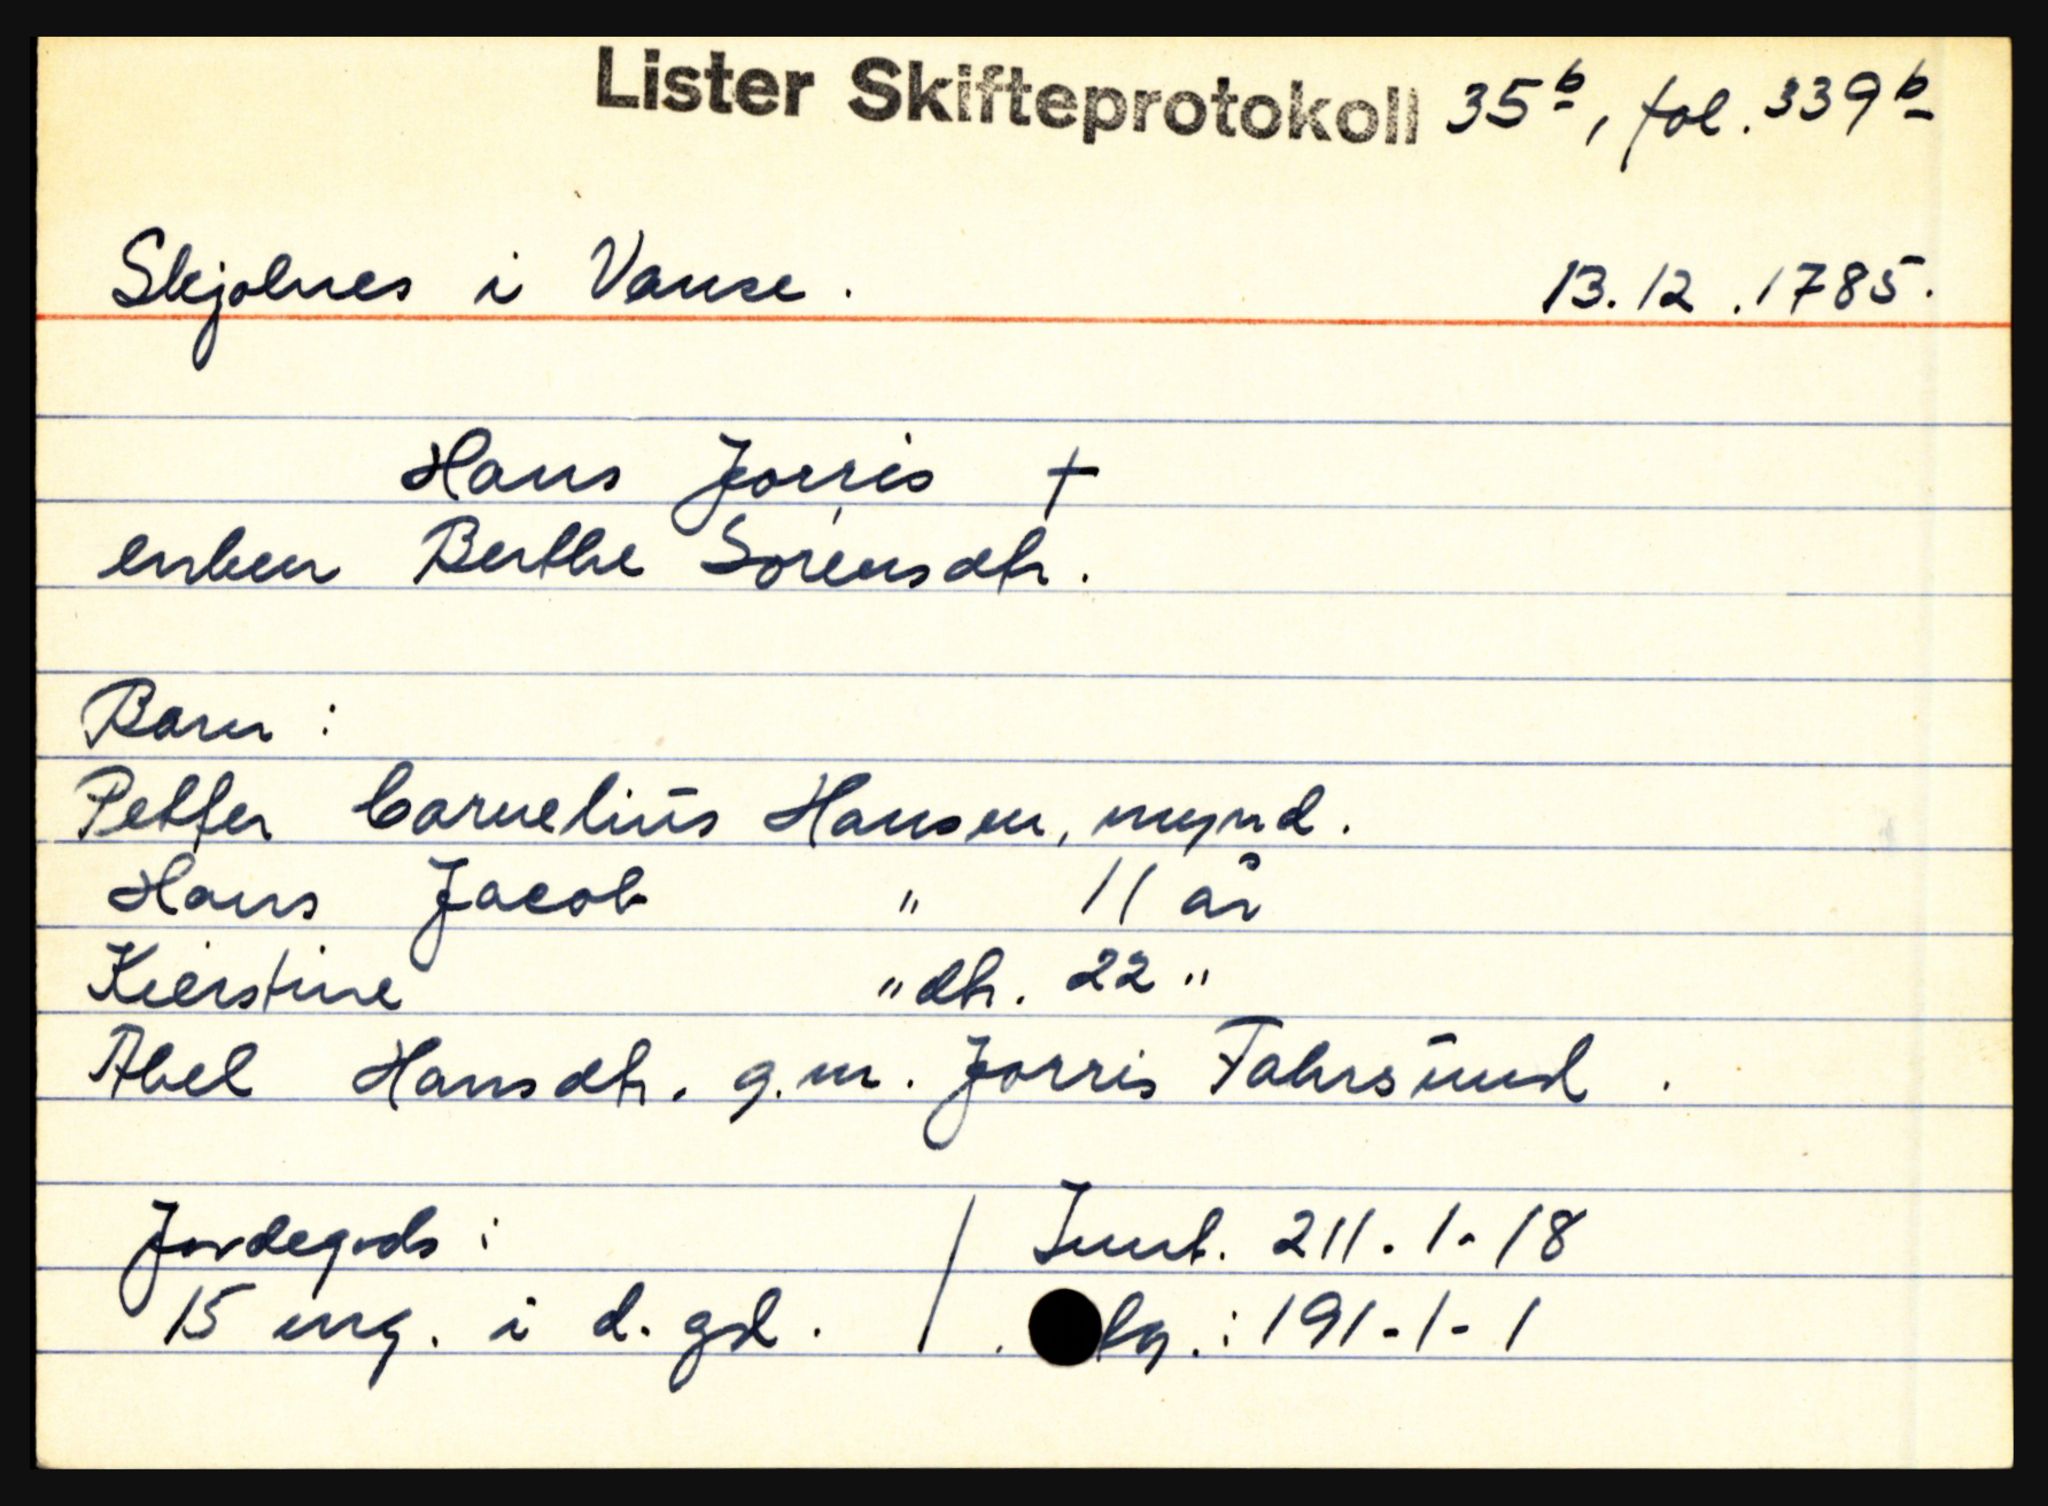 Lister Skifteprotokoll 35b, fol. 339b
Skjolnes i Vanse. 13.12.1785.
Hans Jorris †
enken Berthe Sørensdtr.
Barn:
Petter Cornelius Hansen, mynd.
Hans Jacob " 11 år
Kierstine " dtr. 22 "
Abel Hansdtr. g.m. Jorris Fahrsund.
Jordegods: / Innb. 211-1-18
15 mg. i d. gd. /
: 191-1-1